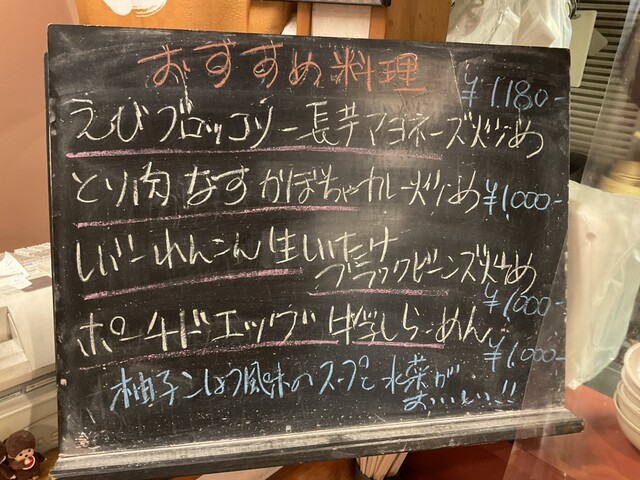 おすすめ料理
¥1,180-
えびブロッコリー長芋マヨネーズ炒め
とり肉なすかぼちゃカレー炒め ¥1,000-
レバーれんこん生しいたけ
ブラックビーンズ炒め
¥1,000-
ポーチドエッグ らーめん
¥1,000-
柚子こしょう風味のスープと水菜が
おいしい!!